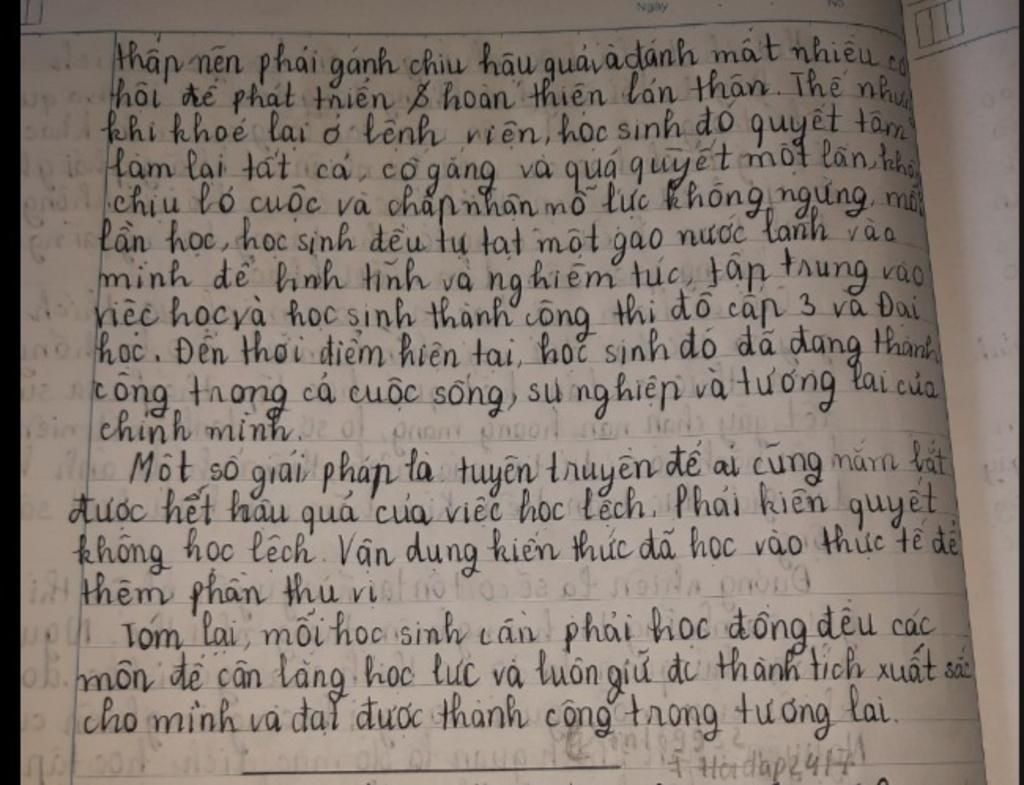 Ngày
thấp nên phải gánh chịu hậu quả và đánh mất nhiều cơ
hội để phát triển & hoàn thiện bản thân. Thế nhưng
khi khoẻ lại ở bệnh viện, học sinh đó quyết tâm
làm lại tất cả, cố gắng và quả quyết một lần, khô
chịu bỏ cuộc và chấp nhận nỗ lực không ngừng, mỗi
lần học, học sinh đều tự tạt một gáo nước lạnh vào
mình để bình tĩnh và nghiêm túc, tập trung vào
việc học và học sinh thành công thi đỗ cấp 3 và Đại
học. Đến thời điểm hiện tại, học sinh đó đã đang thành
công trong cả cuộc sống, sự nghiệp và tương lai của
chính mình.
Một số giải pháp là tuyên truyền để ai cũng nắm bắt
được hết hậu quả của việc học lệch. Phải kiên quyết
không học lệch. Vận dụng kiến thức đã học vào thực tế để
thêm phần thú vị.
Tóm lại, mỗi học sinh cần phải học đồng đều các
môn để cân bằng học lực và luôn giữ đc thành tích xuất sắc
cho mình và đạt được thành công trong tương lai.